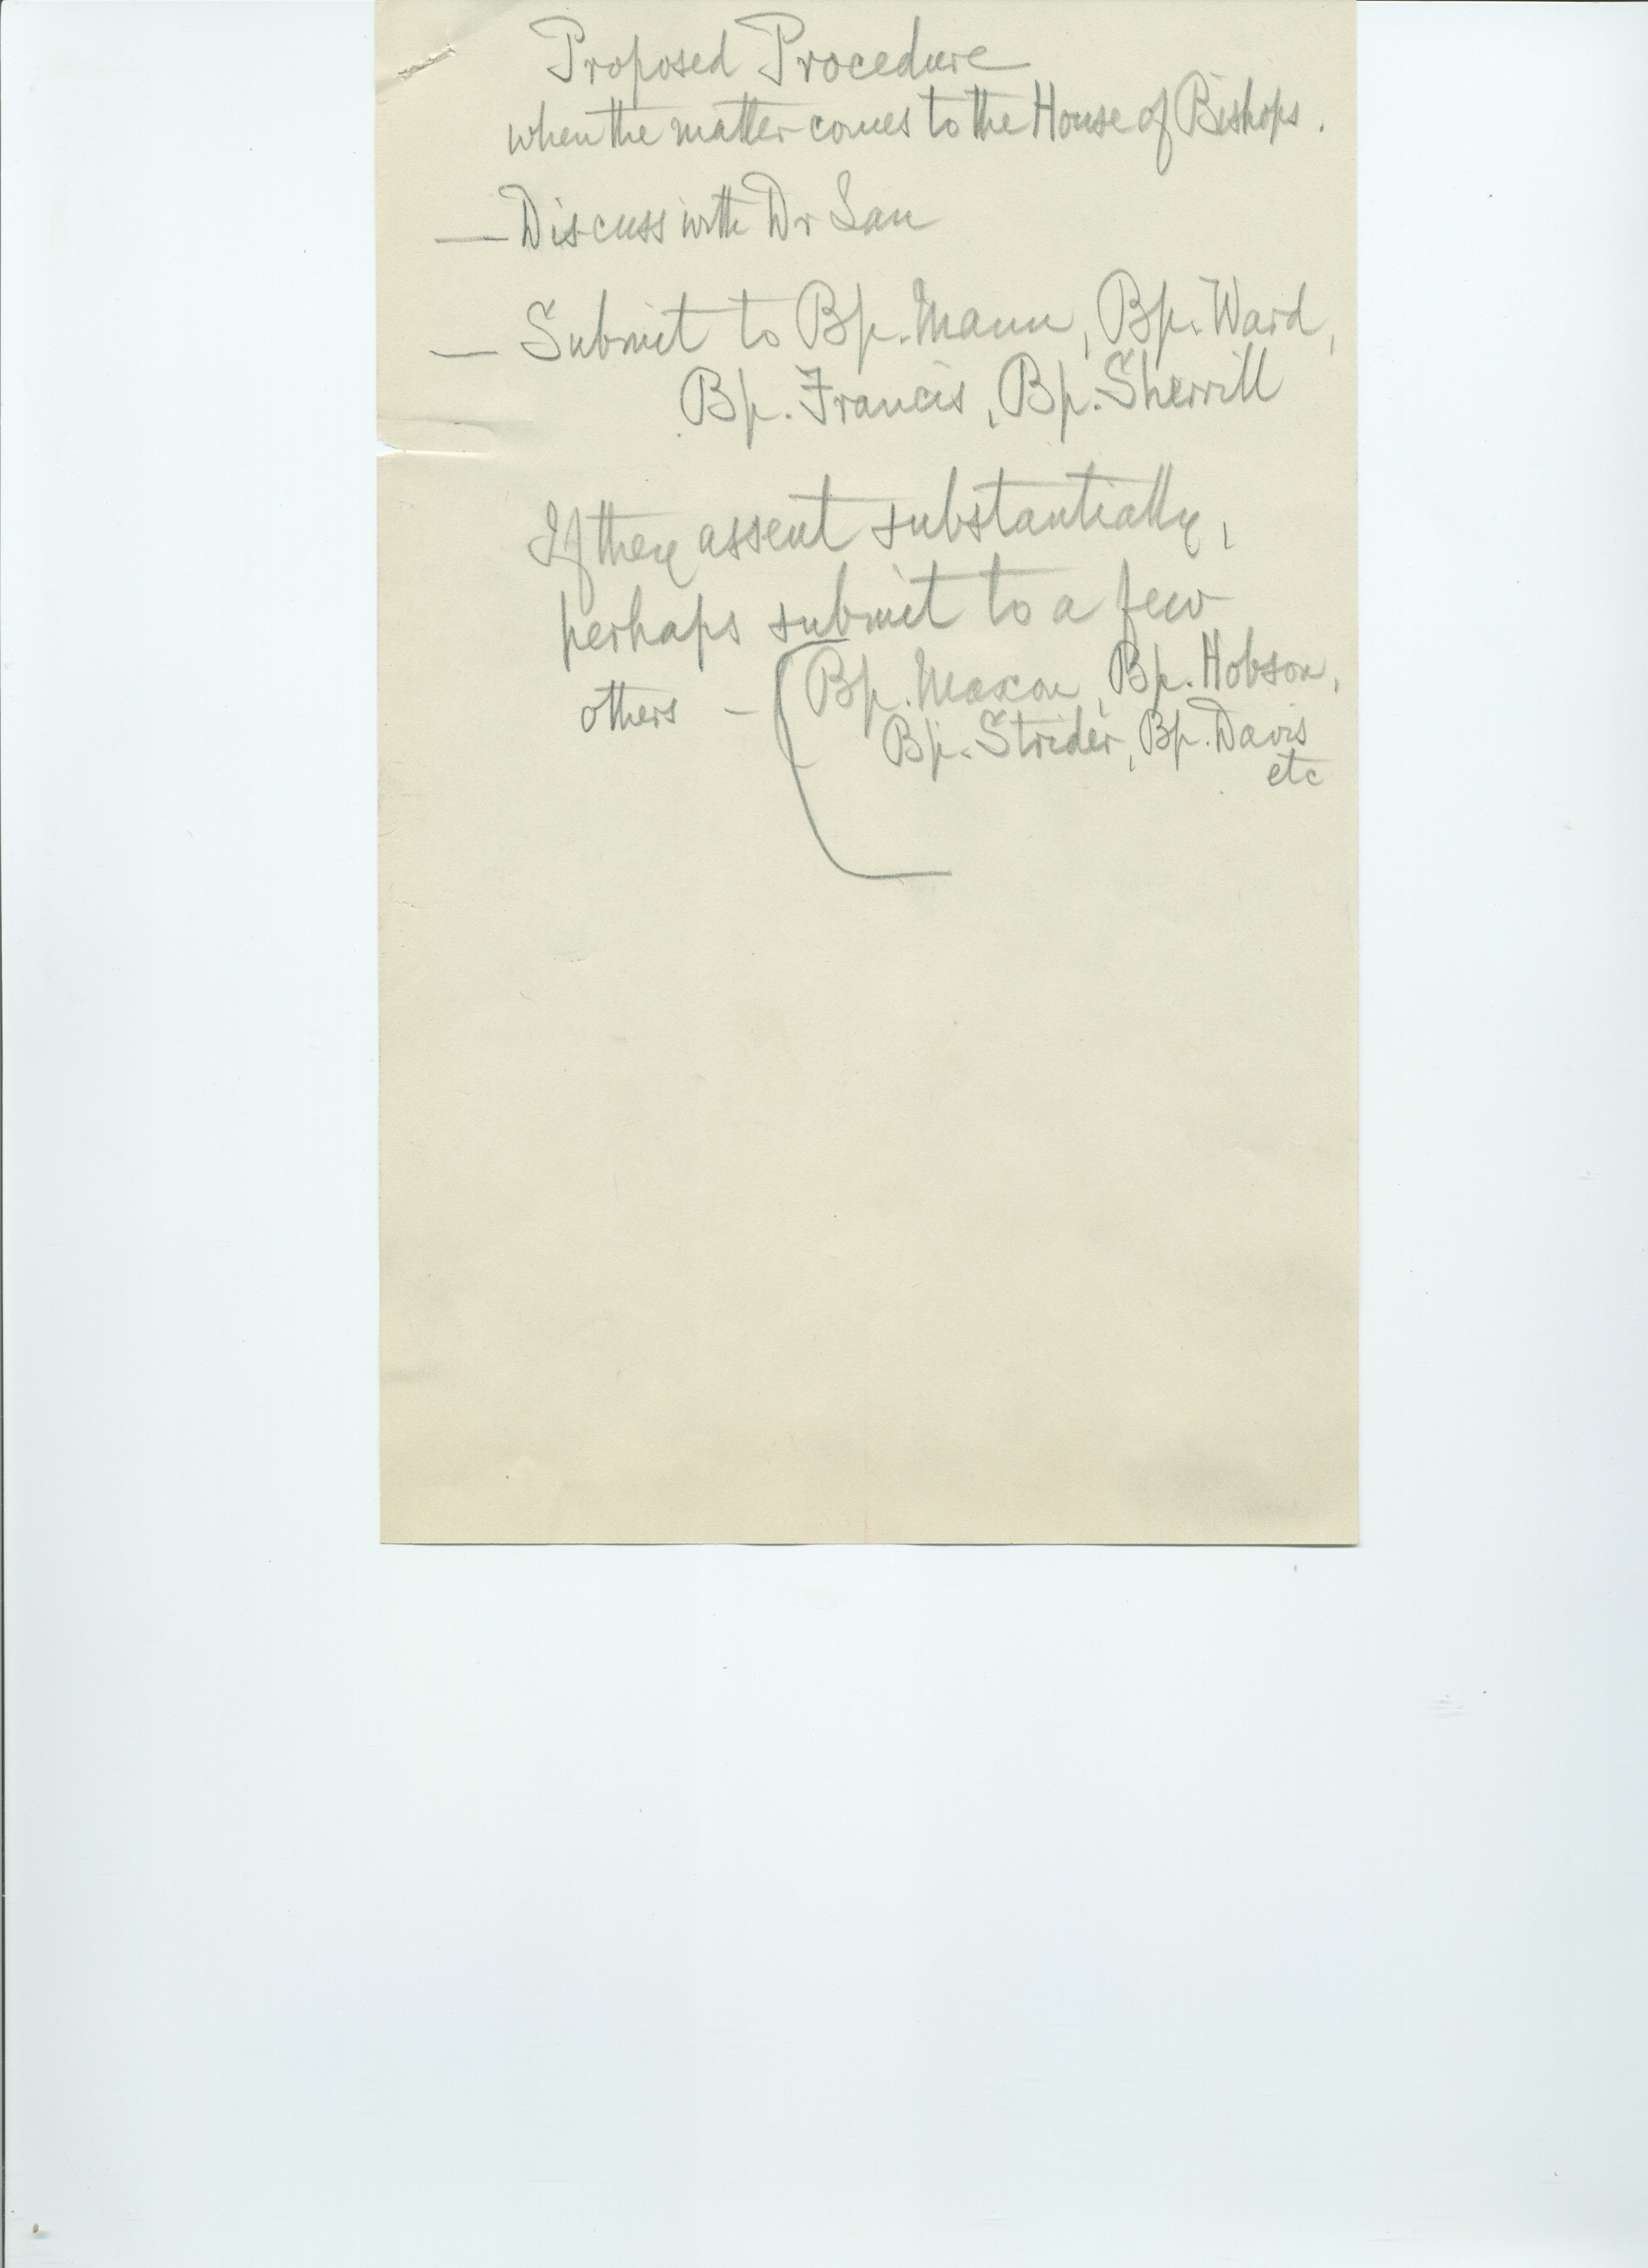 Proposed Procedure
when the matter comes to the House of Bishops.
— Discuss with Dr
— Submit to Bp. Mann, Bp. Ward,
Bp. Francis, Bp. Sherrill
If they assent substantially,
perhaps submit to a few
others - ( Bp. Maxon, Bp. Hobson,
Bp. Strider, Bp. Davis
etc